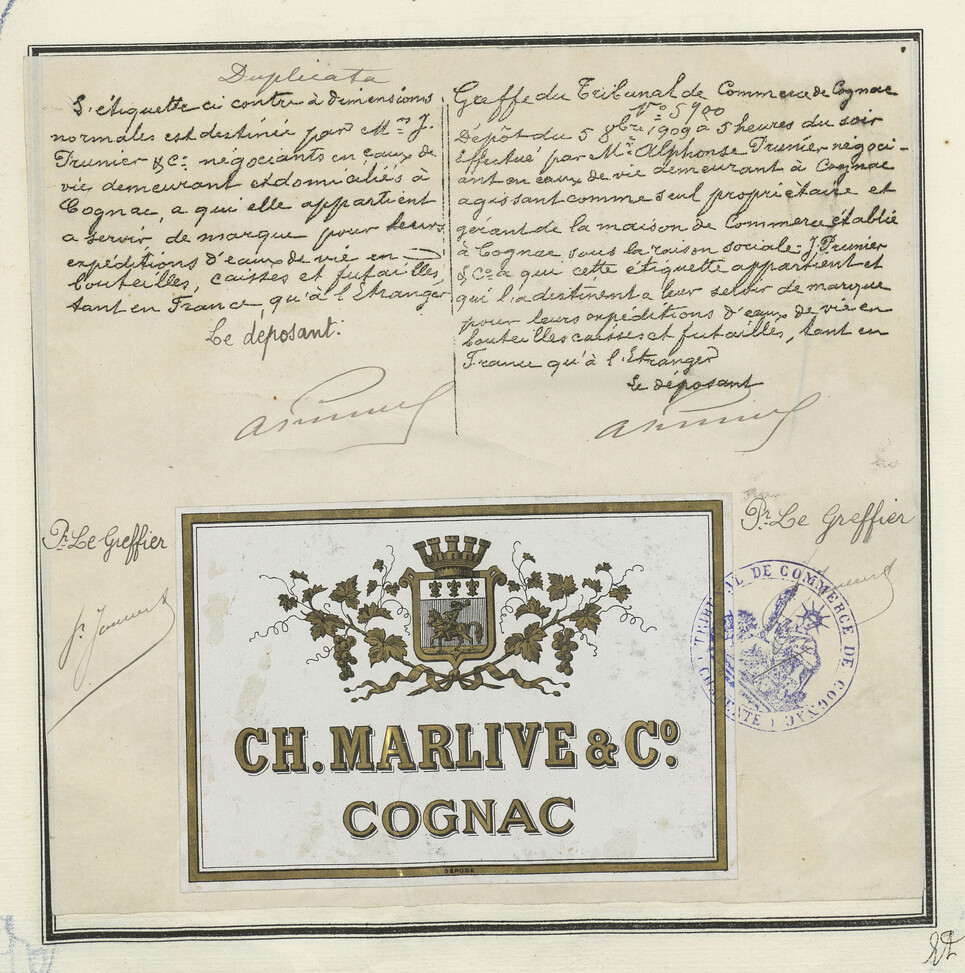 Duplicata
L'étiquette ci contre à dimensions
normales est destinée par Mrs J.
Prunier & Co. négociants en eaux de
vie demeurant et domiciliés à
Cognac, a qui elle appartient
a servir de marque pour leurs
expéditions d'eaux de vie en
bouteilles, caisses et futailles,
tant en France, qu'à l'Etranger
Le déposant:
Greffe du Tribunal de Commerce de Cognac
No 5900
Dépôt du 5 8bre 1909 à 5 heures du soir
Effectué par Mr Alphonse Prunier négoci-
ant en eaux de vie demeurant à Cognac
agissant comme seul propriétaire et
gérant de la maison de Commerce établie
à Cognac sous la raison sociale: J. Prunier
& Co a qui cette étiquette appartient et
qui l'a destinent a leur servir de marque
pour leurs expéditions d'eaux de vie en
bouteilles caisses et futailles, tant en
France qu'à l'Etranger
Le déposant
APrunier
APrunier
Pr Le Greffier
Pr Le Greffier
TRIBUNAL DE COMMERCE DE COGNAC
(CHARENTE)
CH. MARLIVE & Co.
COGNAC
DÉPOSÉ